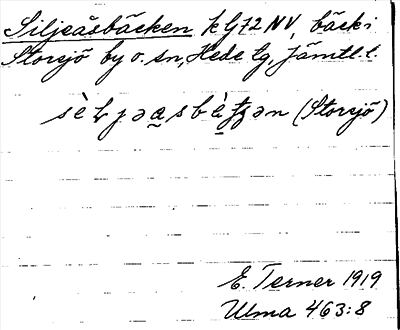 Siljeåsbäcken k Gf72 NV, bäck i
Storsjö by o. sn, Hede tg, Jämtl. l.
(Storsjö)
E. Terner 1919
Ulma 463:8